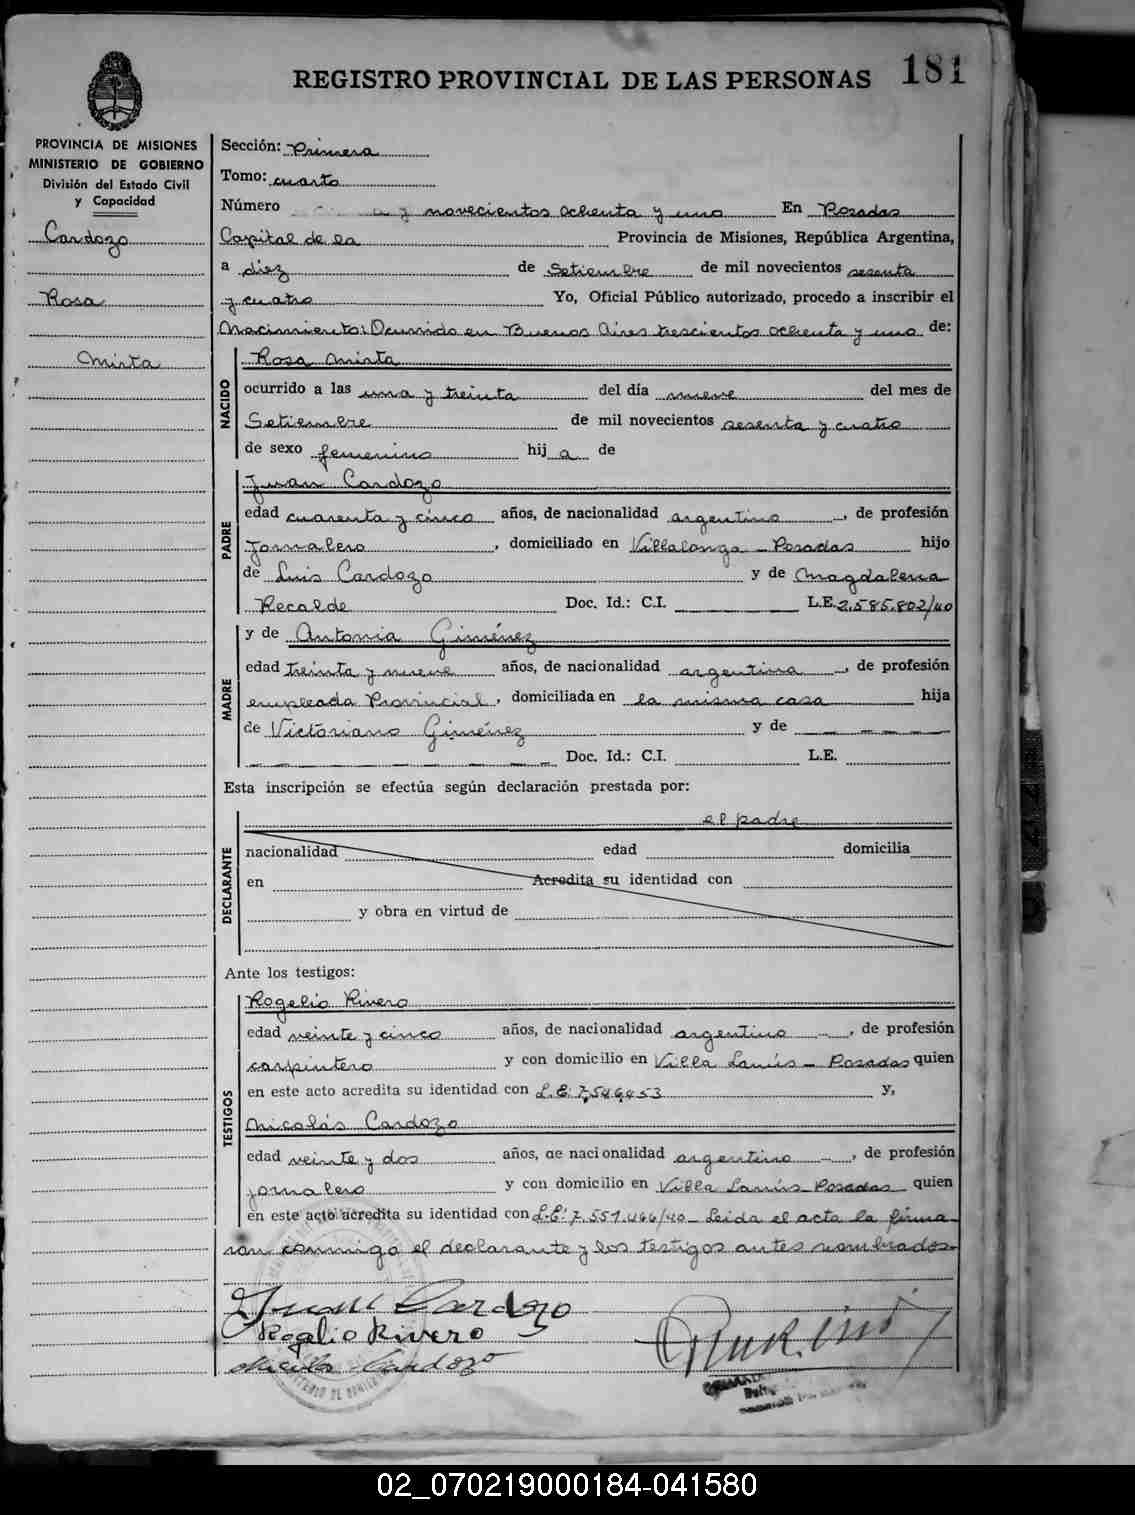 REGISTRO PROVINCIAL DE LAS PERSONAS
181
PROVINCIA DE MISIONES
MINISTERIO DE GOBIERNO
División del Estado Civil
y Capacidad
Cardozo
Rosa
Mirta
Sección: Primera
Tomo: cuarto
Número a y novecientos ochenta y uno En Posadas
Capital de la Provincia de Misiones, República Argentina,
a diez de Setiembre de mil novecientos sesenta
y cuatro Yo, Oficial Público autorizado, procedo a inscribir el
Nacimiento: Ocurrido en Buenos Aires trescientos ochenta y uno de:
NACIDO
Rosa Mirta
ocurrido a las una y treinta del día nueve del mes de
Setiembre de mil novecientos sesenta y cuatro
de sexo femenino hij a de
PADRE
Juan Cardozo
edad cuarenta y cinco años, de nacionalidad argentino, de profesión
Jornalero, domiciliado en Villalonga - Posadas hijo
de Luis Cardozo y de Magdalena
Recalde Doc. Id.: C.I. L.E. 2.585.802/40
MADRE
y de Antonia Giménez
edad treinta y nueve años, de nacionalidad argentina, de profesión
empleada Provincial, domiciliada en la misma casa hija
de Victoriano Giménez y de
Doc. Id.: C.I. L.E.
Esta inscripción se efectúa según declaración prestada por:
DECLARANTE
el padre
nacionalidad edad domicilia
en Acredita su identidad con
y obra en virtud de
Ante los testigos:
TESTIGOS
Rogelio Rivero
edad veinte y cinco años, de nacionalidad argentino, de profesión
carpintero y con domicilio en Villa Lanús - Posadas quien
en este acto acredita su identidad con L.E: y,
Nicolás Cardozo
edad veinte y dos años, de nacionalidad argentino, de profesión
jornalero y con domicilio en Villa Lanús - Posadas quien
en este acto acredita su identidad con L.E: 7.551.466/40 - Leida el acta la firma-
ron conmigo el declarante y los testigos antes nombrados-
Juan Cardozo
Rogelio Rivero
Nicolas Cardozo
02_070219000184-041580